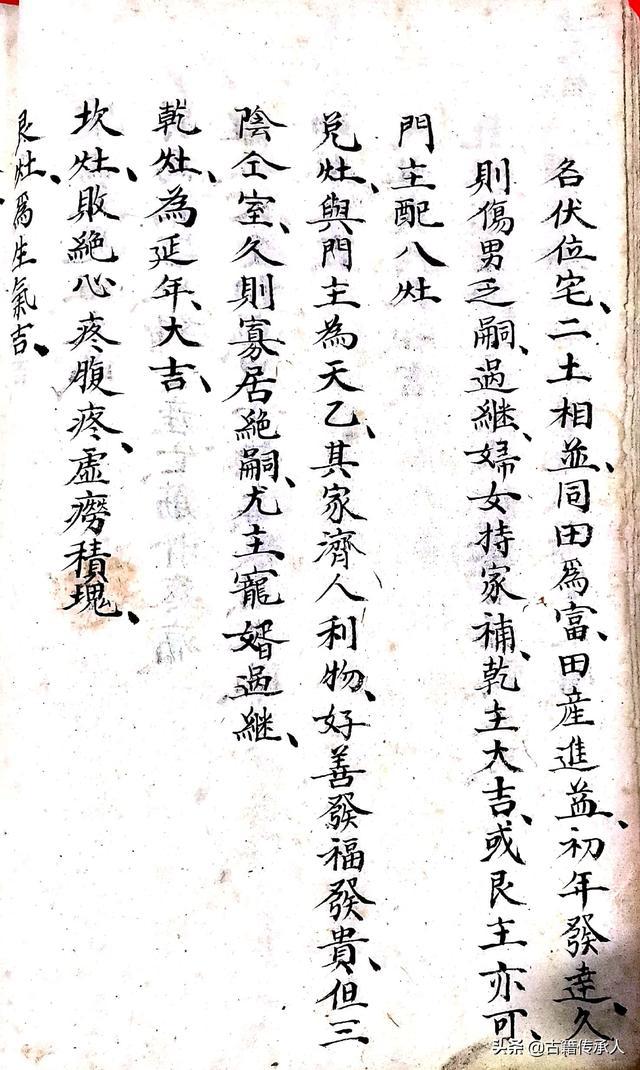 名伏位宅、二土相並、同田為富、田産進益、初年發達、久
則傷男乏嗣、過継、婦女持家補、乾主大吉、或艮主亦可、
門主配八灶
兌灶、與門主為天乙、其家濟人利物、好善發福發貴、但三
陰仝室、久則寡居絶嗣、尤主寵婿過継、
乾灶、為延年、大吉、
坎灶、敗絶心疼腹疼、虛癆積塊、
艮灶、爲生氣吉、
头条 @古籍传承人